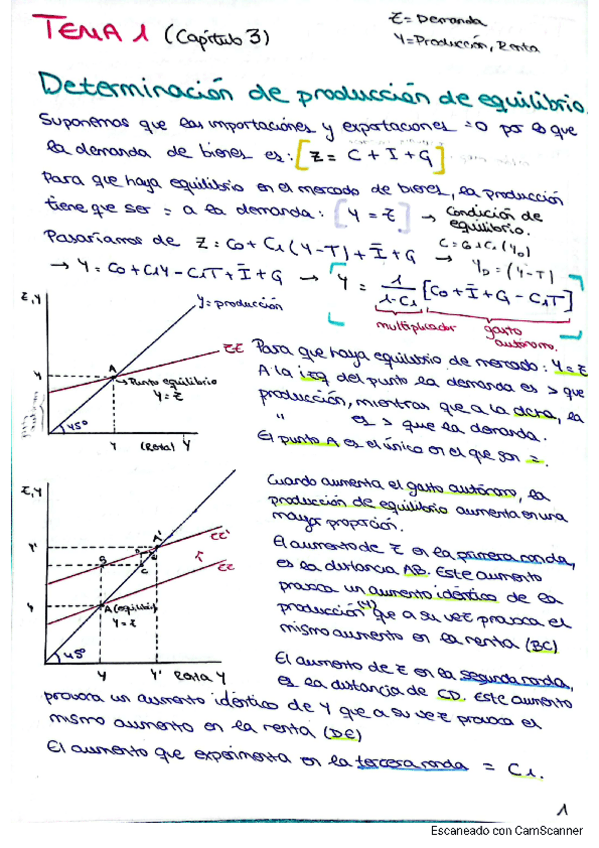 TEMA 1 (Capítulo 3)
Z = Demanda
Y = Producción, Renta
Determinación de producción de equilibrio.
Suponemos que las importaciones y exportaciones = 0 por lo que
la demanda de bienes es: [Z = C + I + G]
Para que haya equilibrio en el mercado de bienes, la producción
tiene que ser = a la demanda: [Y = Z] → Condición de
equilibrio.
Pasaríamos de Z = C0 + C1 (Y-T) + Ī + G → C = C0 + C1 (YD)
YD = (Y-T)
→ Y = C0 + C1Y - C1T + Ī + G → Y = 1/1-C1 [C0 + Ī + G - C1T]
multiplicador gasto
autónomo.
Z, Y
Y = producción
ZZ
A
Punto equilibrio
Y = Z
Y
45º
Y (Renta) Y
Para que haya equilibrio de mercado: Y = Z
A la izq del punto la demanda es > que
producción, mientras que a la dcha, la
" es > que la demanda.
El punto A es el único en el que son =.
Z, Y
ZZ'
ZZ
A'
Y'
B
D
E
C
Y
A (equilibrio)
Y = Z
45º
Y Y' Renta Y
Cuando aumenta el gasto autónomo, la
producción de equilibrio aumenta en una
mayor proporción.
El aumento de Z en la primera ronda,
es la distancia AB. Este aumento
provoca un aumento idéntico de la
producción (Y) que a su vez provoca el
mismo aumento en la renta (BC)
El aumento de Z en la segunda ronda,
es la distancia de CD. Este aumento
provoca un aumento idéntico de Y que a su vez provoca el
mismo aumento en la renta (DE)
El aumento que experimenta en la tercera ronda = C1.
1
Escaneado con CamScanner